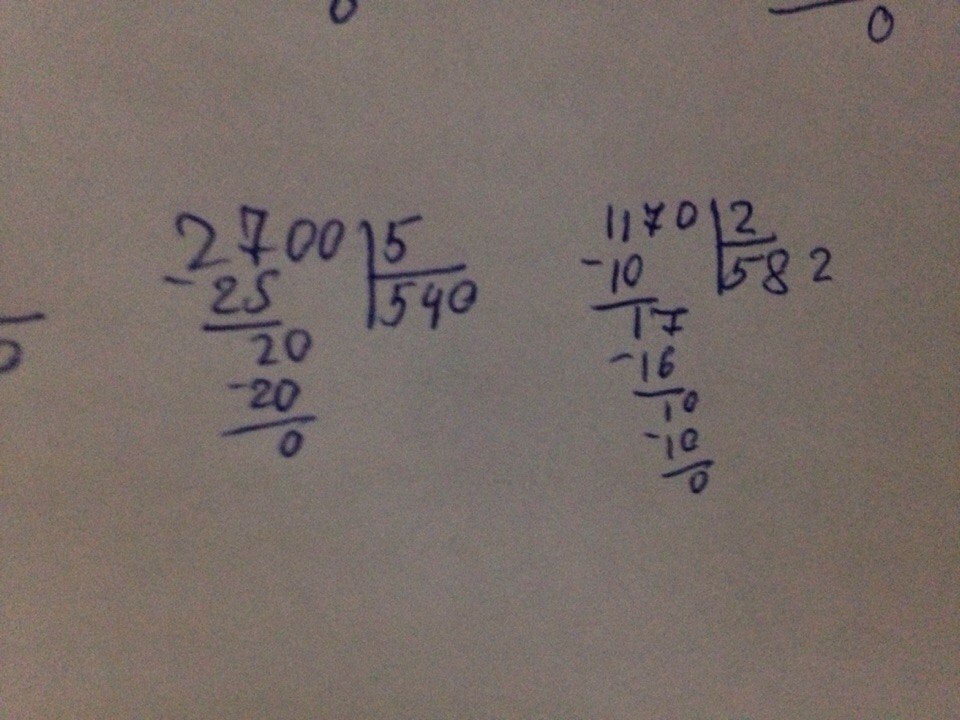 0
0
0
2700 5
-25 540
20
-20
0
1170 2
-10 582
17
-16
10
-10
0